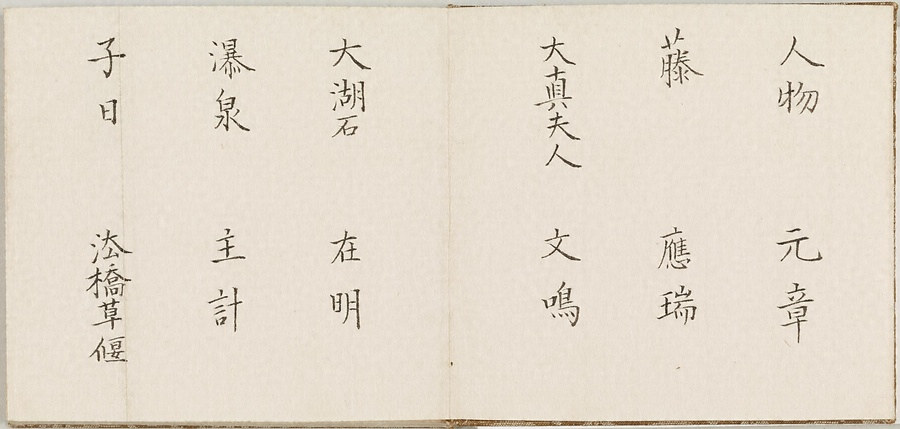 人物 元章
藤 應瑞
大真夫人 文鳴
大湖石 在明
瀑泉 主計
子日 法橋草偃